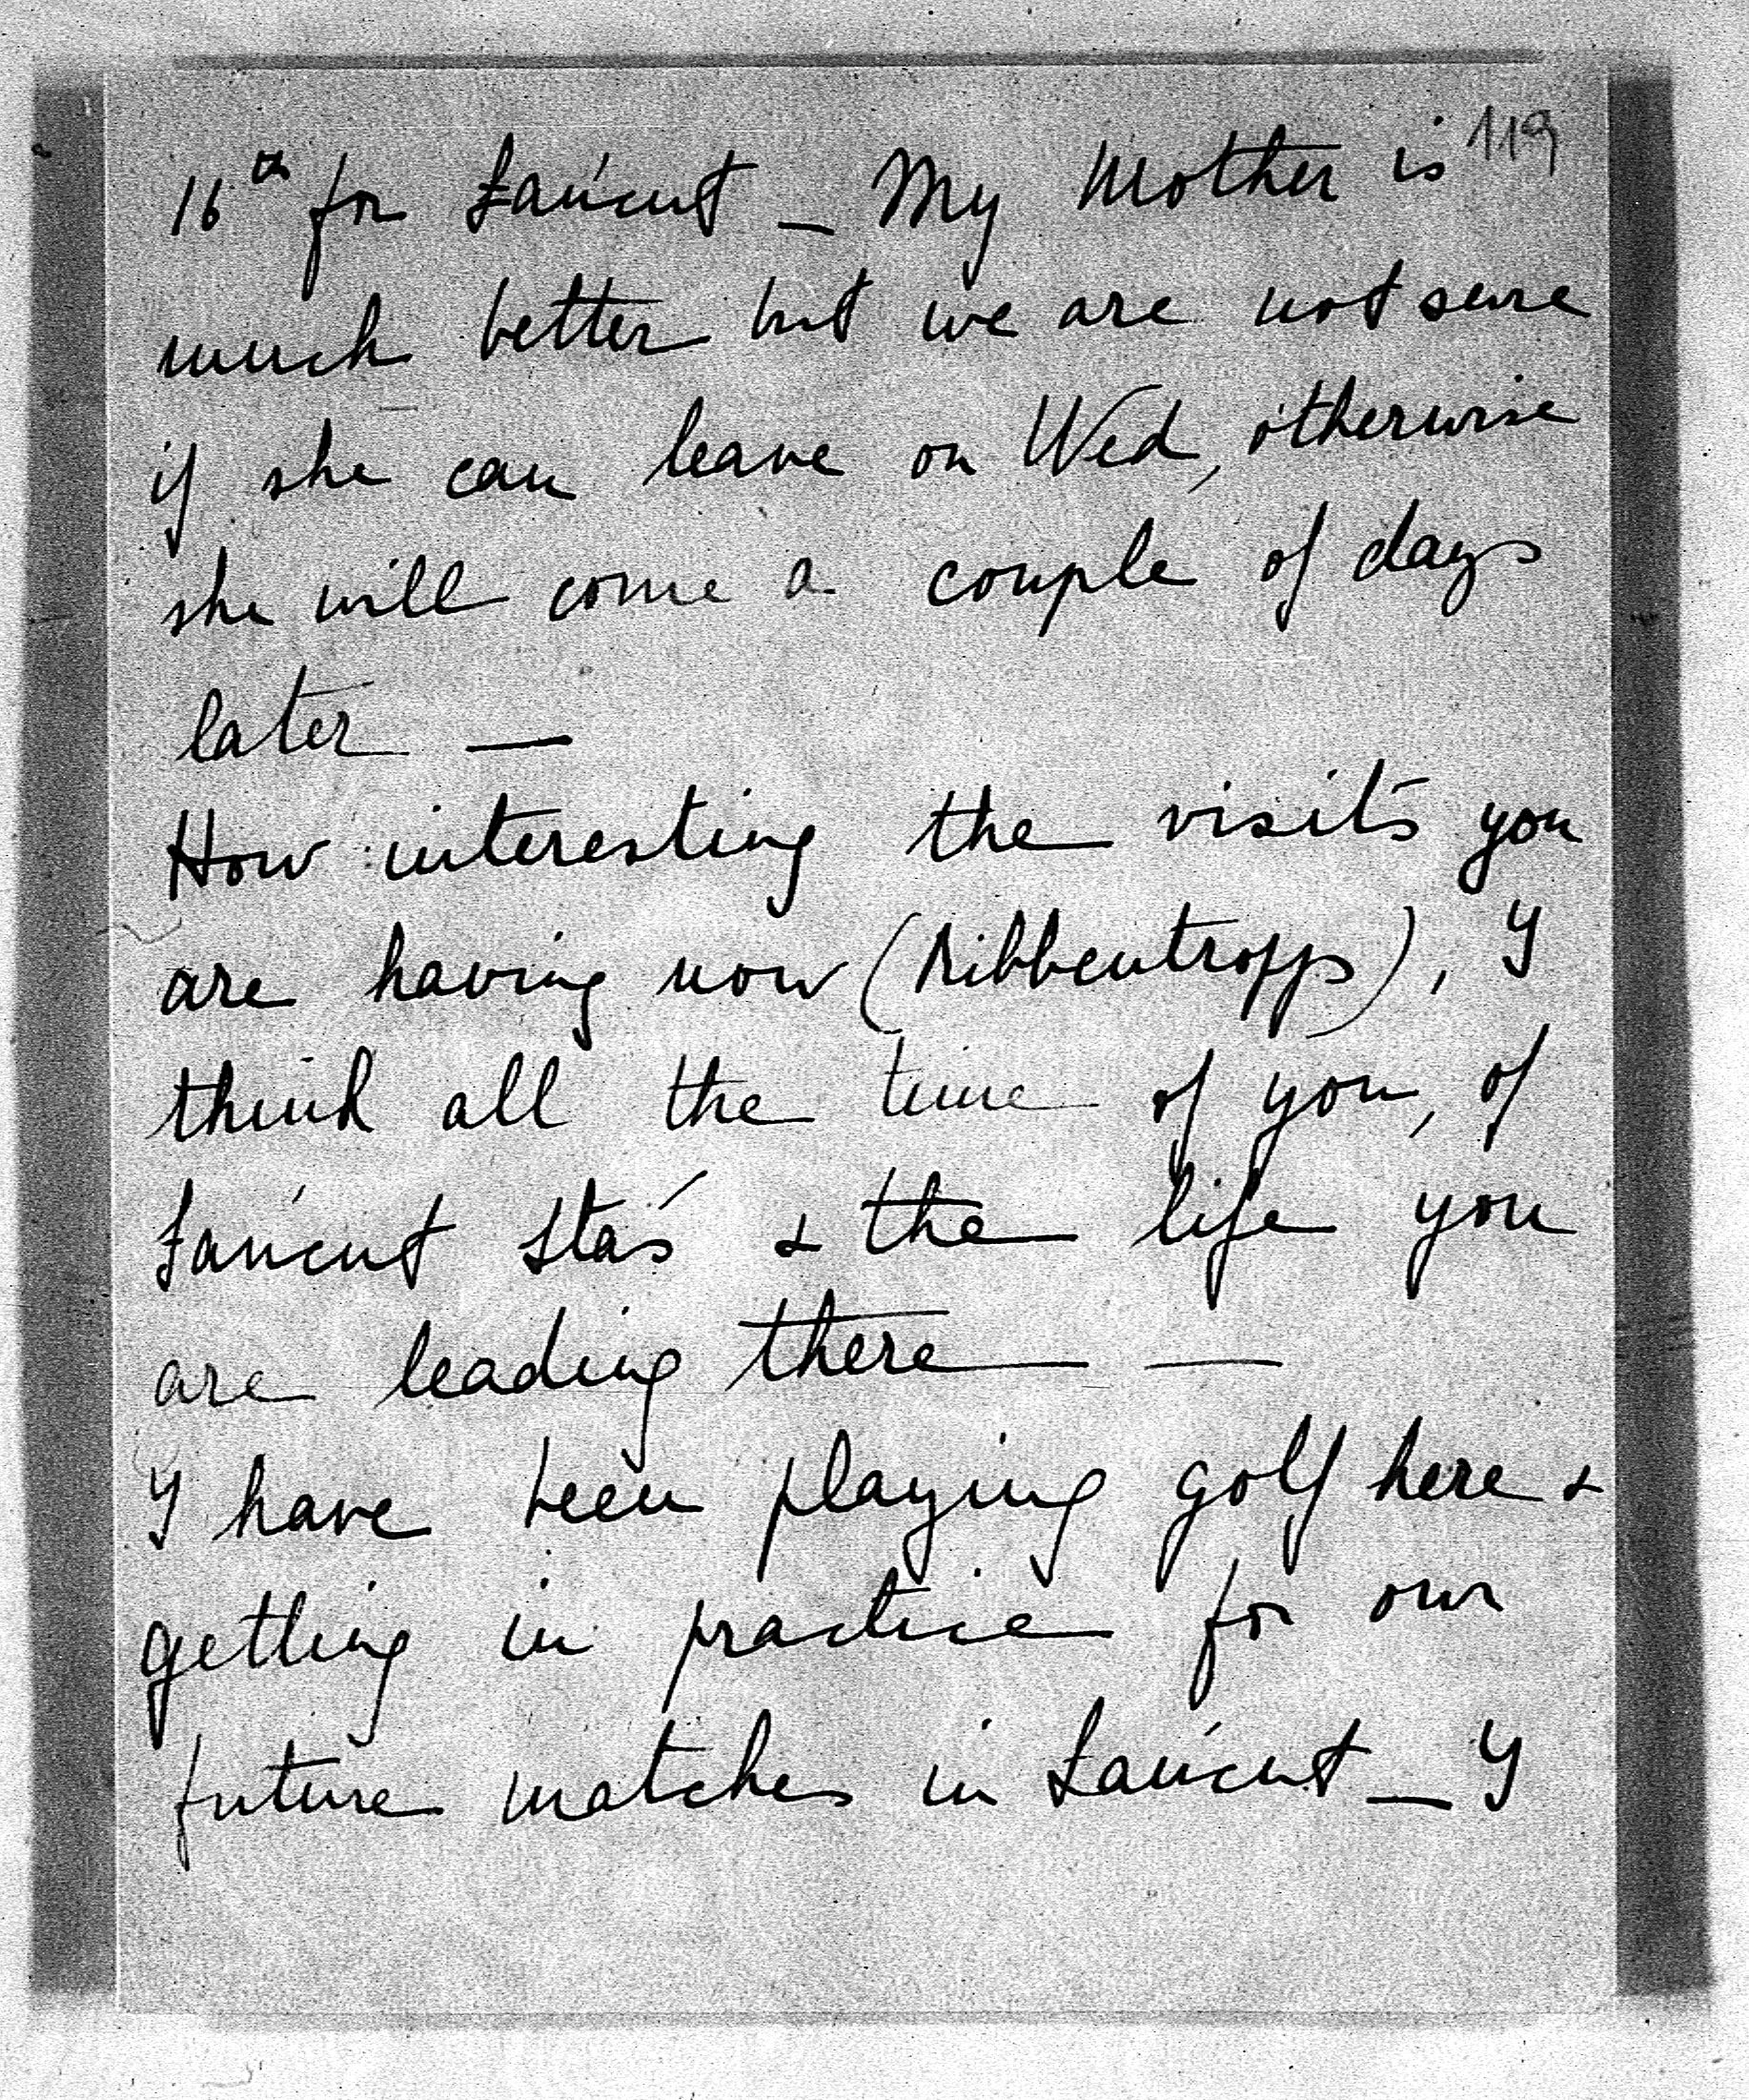 16th for Łańcut – My Mother is 119
much better but we are not sure
if she can leave on Wed, otherwise
she will come a couple of days
later —
How interesting the visits you
are having now (Ribbentropps), I
think all the time of you, of
Łańcut Staś & the life you
are leading there — —
I have been playing golf here &
getting in practice for our
future matches in Łańcut – I